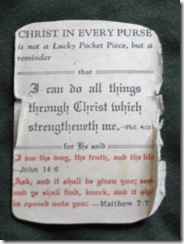 CHRIST IN EVERY PURSE
is not a Lucky Pocket Piece, but a
reminder
that
I can do all things
through Christ which
strengtheneth me.—Phil. 4:13
for He said
I am the way, the truth, and the life
—John 14 6
Ask, and it shall be given you; seek
and ye shall find, knock, and it shall
be opened unto you: —Matthew 7 7